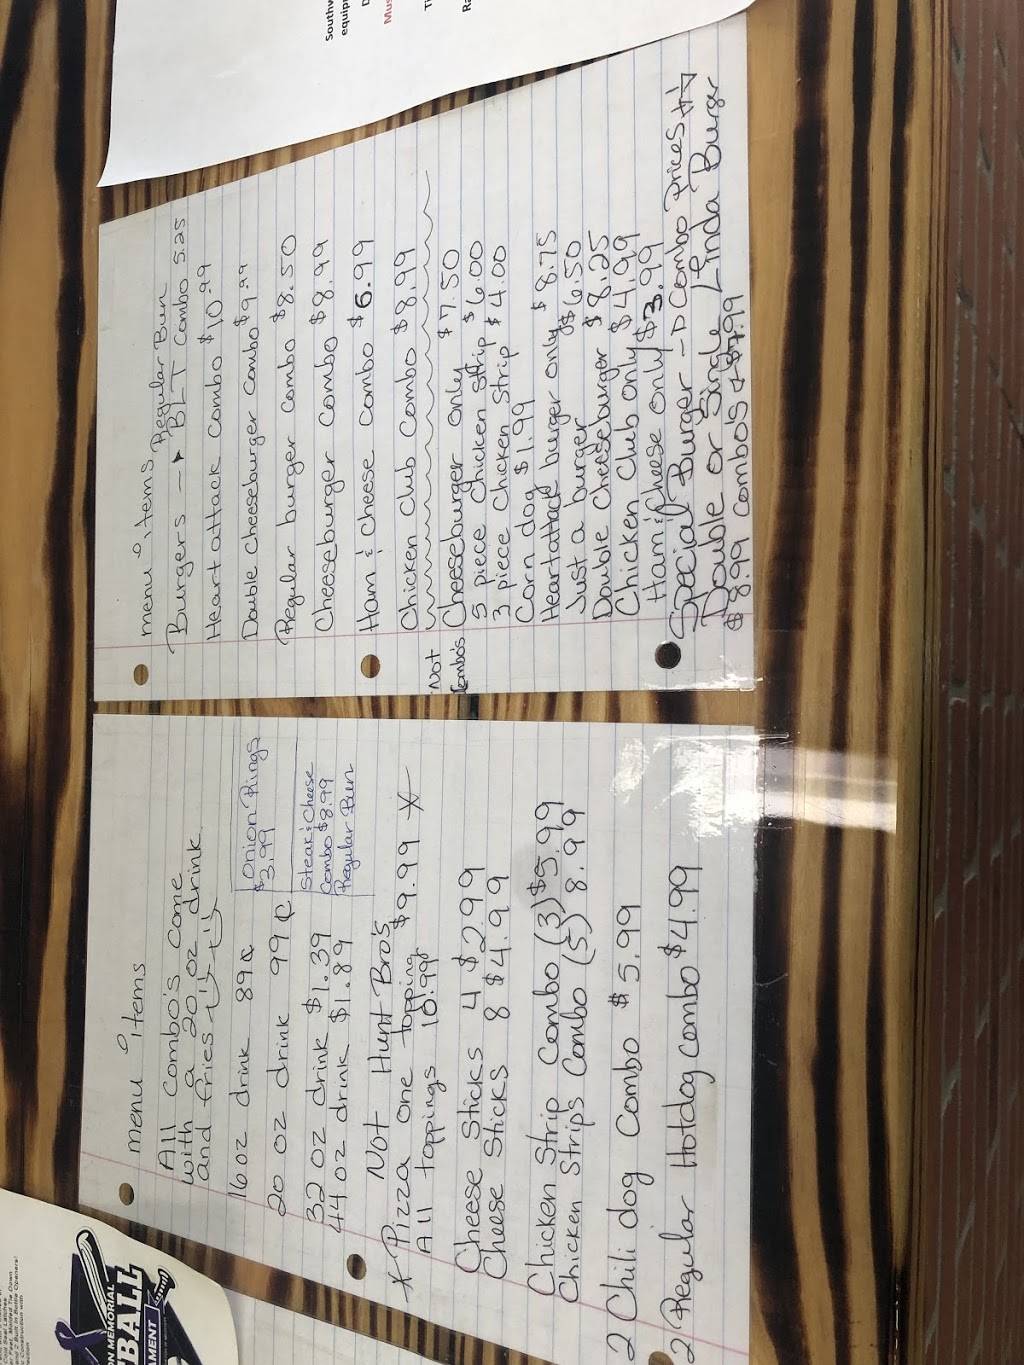 menu items
All combo's come
with a 20 oz drink
and fries
16 oz drink 89¢
20 oz drink 99¢
32 oz drink $1.39
44 oz drink $1.89
Onion Rings
$3.99
Steak & Cheese
Combo $8.99
Regular Bun
Not Hunt Bro's
Pizza one topping $9.99
All toppings 10.99
Cheese Sticks 4 $2.99
Cheese Sticks 8 $4.99
Chicken Strip Combo (3) $5.99
Chicken Strips Combo (5) 8.99
2 Chili dog Combo $5.99
2 Regular Hotdog combo $4.99
menu items
Regular Bun
Burgers → BLT Combo 5.25
Heart attack Combo $10.99
Double Cheeseburger Combo $9.99
Regular burger Combo $8.50
Cheeseburger Combo $8.99
Ham & Cheese Combo $6.99
Chicken Club Combo $8.99
Not Combo's
Cheeseburger only $7.50
5 piece Chicken Strip $6.00
3 piece Chicken Strip $4.00
Corn dog $1.99
Heart attack burger only $8.75
Just a burger $6.50
Double Cheeseburger $8.25
Chicken Club only $4.99
Ham & Cheese only $3.99
Special Burger → Combo Prices
Double or Single Linda Burger
$8.99 Combo's $7.99
Southw
equipm
Mus
ON MEMORIAL
TBALL
AMENT